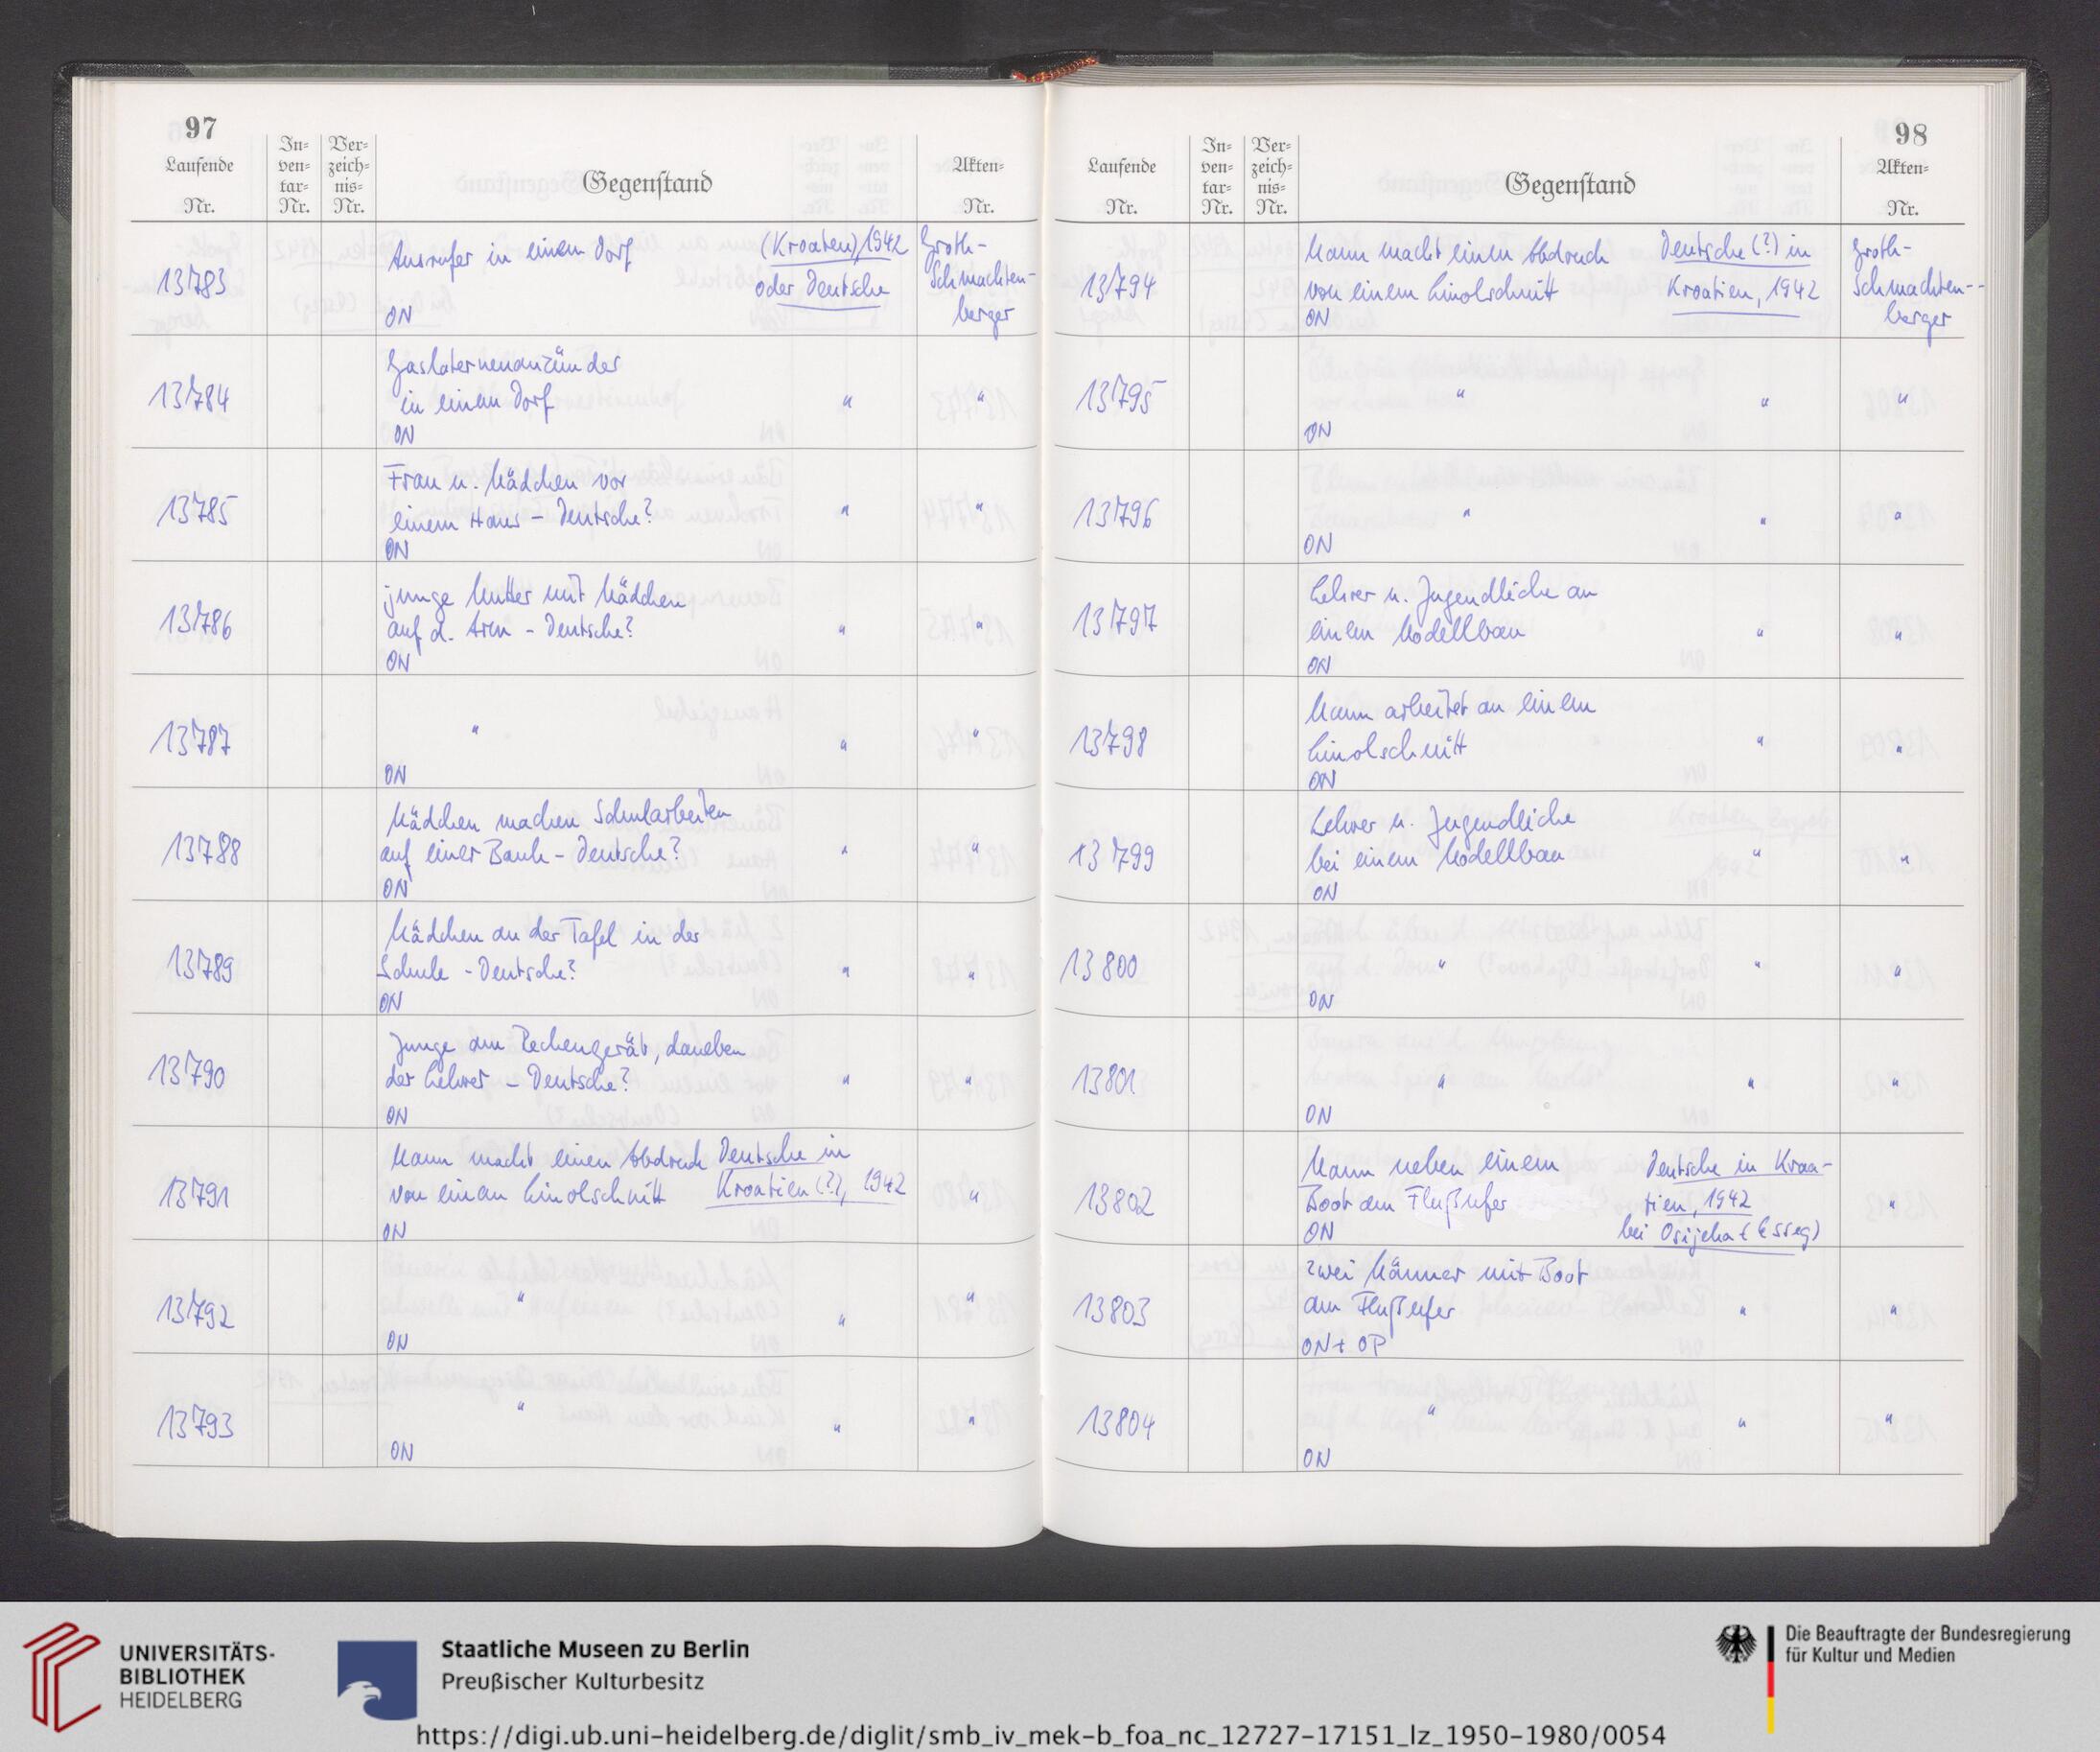 97
Laufende Nr.
In-ven-tar-Nr.
Ver-zeich-nis-Nr.
Gegenstand
Akten-Nr.
13783
Ausrufer in einem Dorf (Kroaten), 1942
oder Deutsche
ON
Groth-
Schmachten-
berger
13784
Gaslaternenanzünder
in einem Dorf " "
ON
13785
Frau u. Mädchen vor
einem Haus – Deutsche? " "
ON
13786
junge Mutter mit Mädchen
auf d. Arm – Deutsche? " "
ON
13787
" " "
ON
13788
Mädchen machen Schularbeiten
auf einer Bank – Deutsche? " "
ON
13789
Mädchen an der Tafel in der
Schule – Deutsche? " "
ON
13790
Junge am Rechengerät, daneben
der Lehrer – Deutsche? " "
ON
13791
Mann macht einen Abdruck Deutsche in
von einem Linolschnitt Kroatien (?), 1942 "
ON
13792
" " "
ON
13793
" " "
ON
98
Laufende Nr.
In-ven-tar-Nr.
Ver-zeich-nis-Nr.
Gegenstand
Akten-Nr.
13794
Mann macht einen Abdruck Deutsche (?) in
von einem Linolschnitt Kroatien, 1942
ON
Groth-
Schmachten-
berger
13795
" " "
ON
13796
" " "
ON
13797
Lehrer u. Jugendliche an
einem Modellbau " "
ON
13798
Mann arbeitet an einem
Linolschnitt " "
ON
13799
Lehrer u. Jugendliche
bei einem Modellbau " "
ON
13800
" " "
ON
13801
" " "
ON
13802
Mann neben einem Deutsche in Kroa-
Boot am Flußufer tien, 1942 "
ON bei Osijeka (Esseg)
13803
zwei Männer mit Boot
am Flußufer " "
ON + OP
13804
" " "
ON
UNIVERSITÄTS-
BIBLIOTHEK
HEIDELBERG
Staatliche Museen zu Berlin
Preußischer Kulturbesitz
Die Beauftragte der Bundesregierung
für Kultur und Medien
https://digi.ub.uni-heidelberg.de/diglit/smb_iv_mek-b_foa_nc_12727-17151_lz_1950-1980/0054